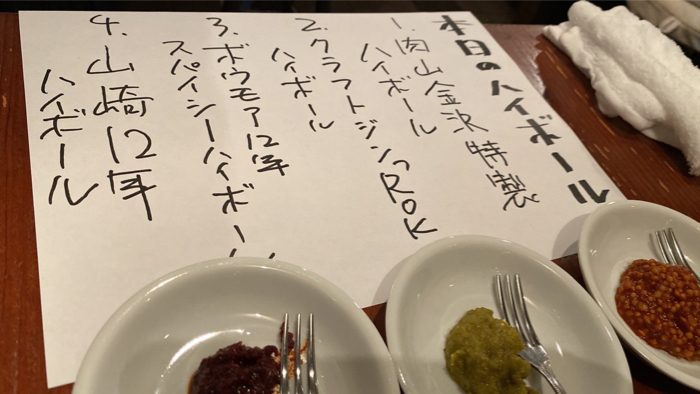 本日のハイボール
1.肉山金沢特製
ハイボール
2.クラフトジンROK
ハイボール
3.ボウモア12年
スパイシーハイボール
4.山崎12年
ハイボール